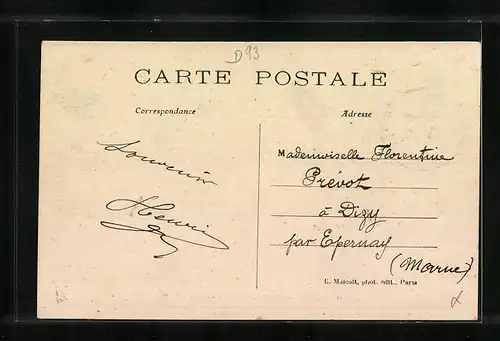 D93
CARTE POSTALE
Correspondance
Adresse
Souvenir
Henri
Mademoiselle Florentine
Prévot
à Dizy
par Epernay
(Marne)
E. Malcuit, phot. édit., Paris